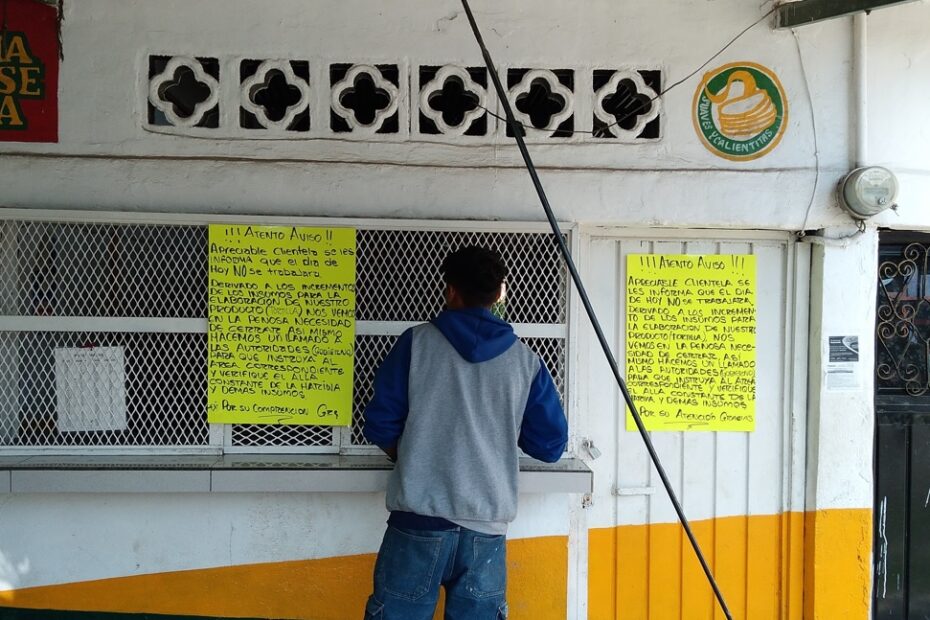 A
SE
A
SUAVES Y CALIENTITAS
¡¡¡ATENTO AVISO!!!
APRECIABLE CLIENTELA SE LES
INFORMA QUE EL DIA DE
HOY NO SE TRABAJARA
DERIVADO A LOS INCREMENTOS
DE LOS INSUMOS PARA LA
ELABORACION DE NUESTRO
PRODUCTO (TORTILLA) NOS VEMOS
EN LA PENOSA NECESIDAD
DE CERRAR, ASI MISMO
HACEMOS UN LLAMADO A
LAS AUTORIDADES (GOBIERNO)
PARA QUE INSTRUYA AL
AREA CORRESPONDIENTE
Y VERIFIQUE EL ALLA
CONSTANTE DE LA HARINA
Y DEMAS INSUMOS
POR SU COMPRENCION
¡¡¡ATENTO AVISO!!!
APRECIABLE CLIENTELA SE
LES INFORMA QUE EL DIA
DE HOY NO SE TRABAJARA,
DERIVADO A LOS INCREMEN-
TO DE LOS INSUMOS PARA
LA ELABORACION DE NUESTRO
PRODUCTO (TORTILLA), NOS
VEMOS EN LA PENOSA NECE-
SIDAD DE CERRAR, ASI
MISMO HACEMOS UN LLAMADO
A LAS AUTORIDADES (GOBIERNO)
PARA QUE INSTRUYA AL AREA
CORRESPONDIENTE Y VERIFIQUE
EL ALLA CONSTANTE DE LA
HARINA Y DEMAS INSUMOS
POR SU ATENCION GRACIAS